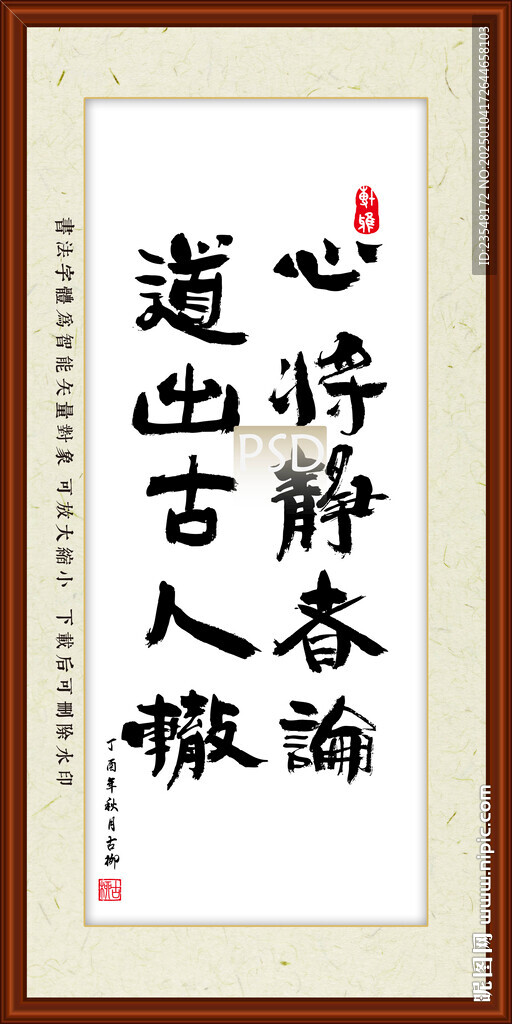 心將靜者論
道出古人轍
丁酉年秋月古柳
軒雅
書法字體為智能矢量對象 可放大縮小 下載后可刪除水印
PSD
ID:23548172 NO:20250104172644658103
昵图网 www.nipic.com